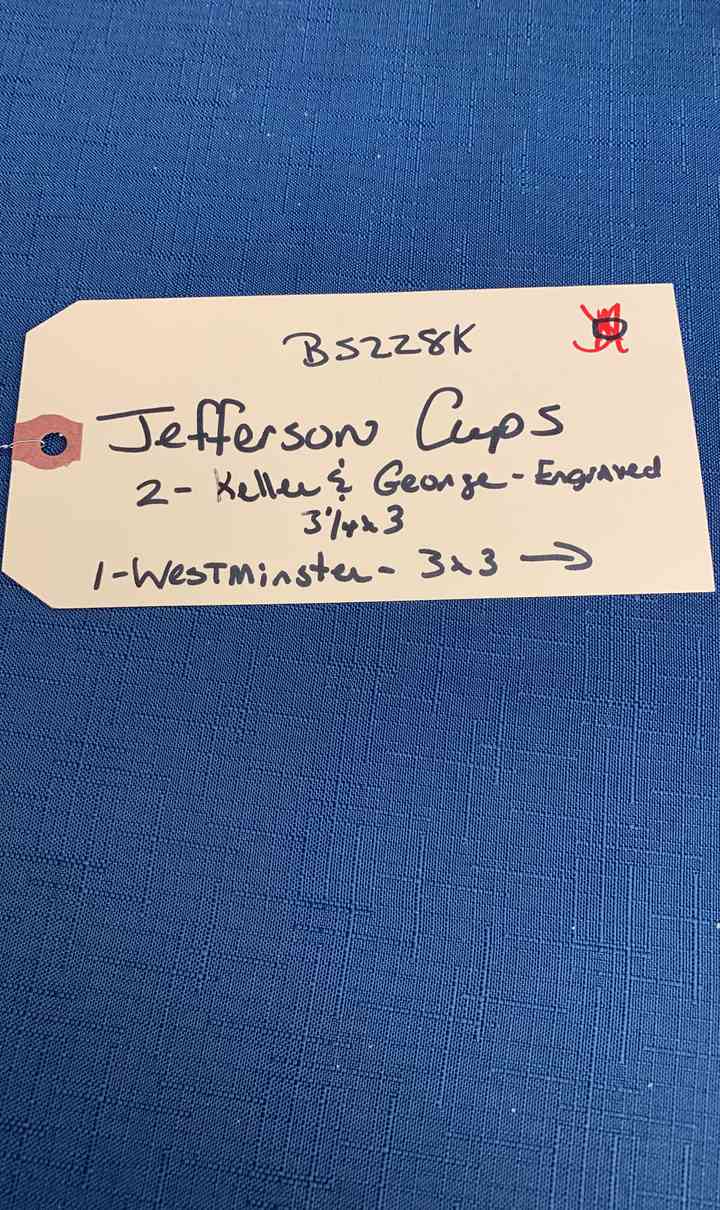 BS228K
Jefferson Cups
2- Keller & George - Engraved
3 1/4 x 3
1-Westminster - 3x3 →